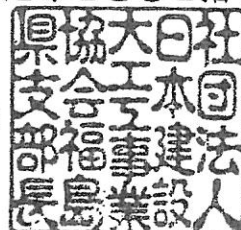 社団法人
日本建設
大工工事業
協会福島
県支部長